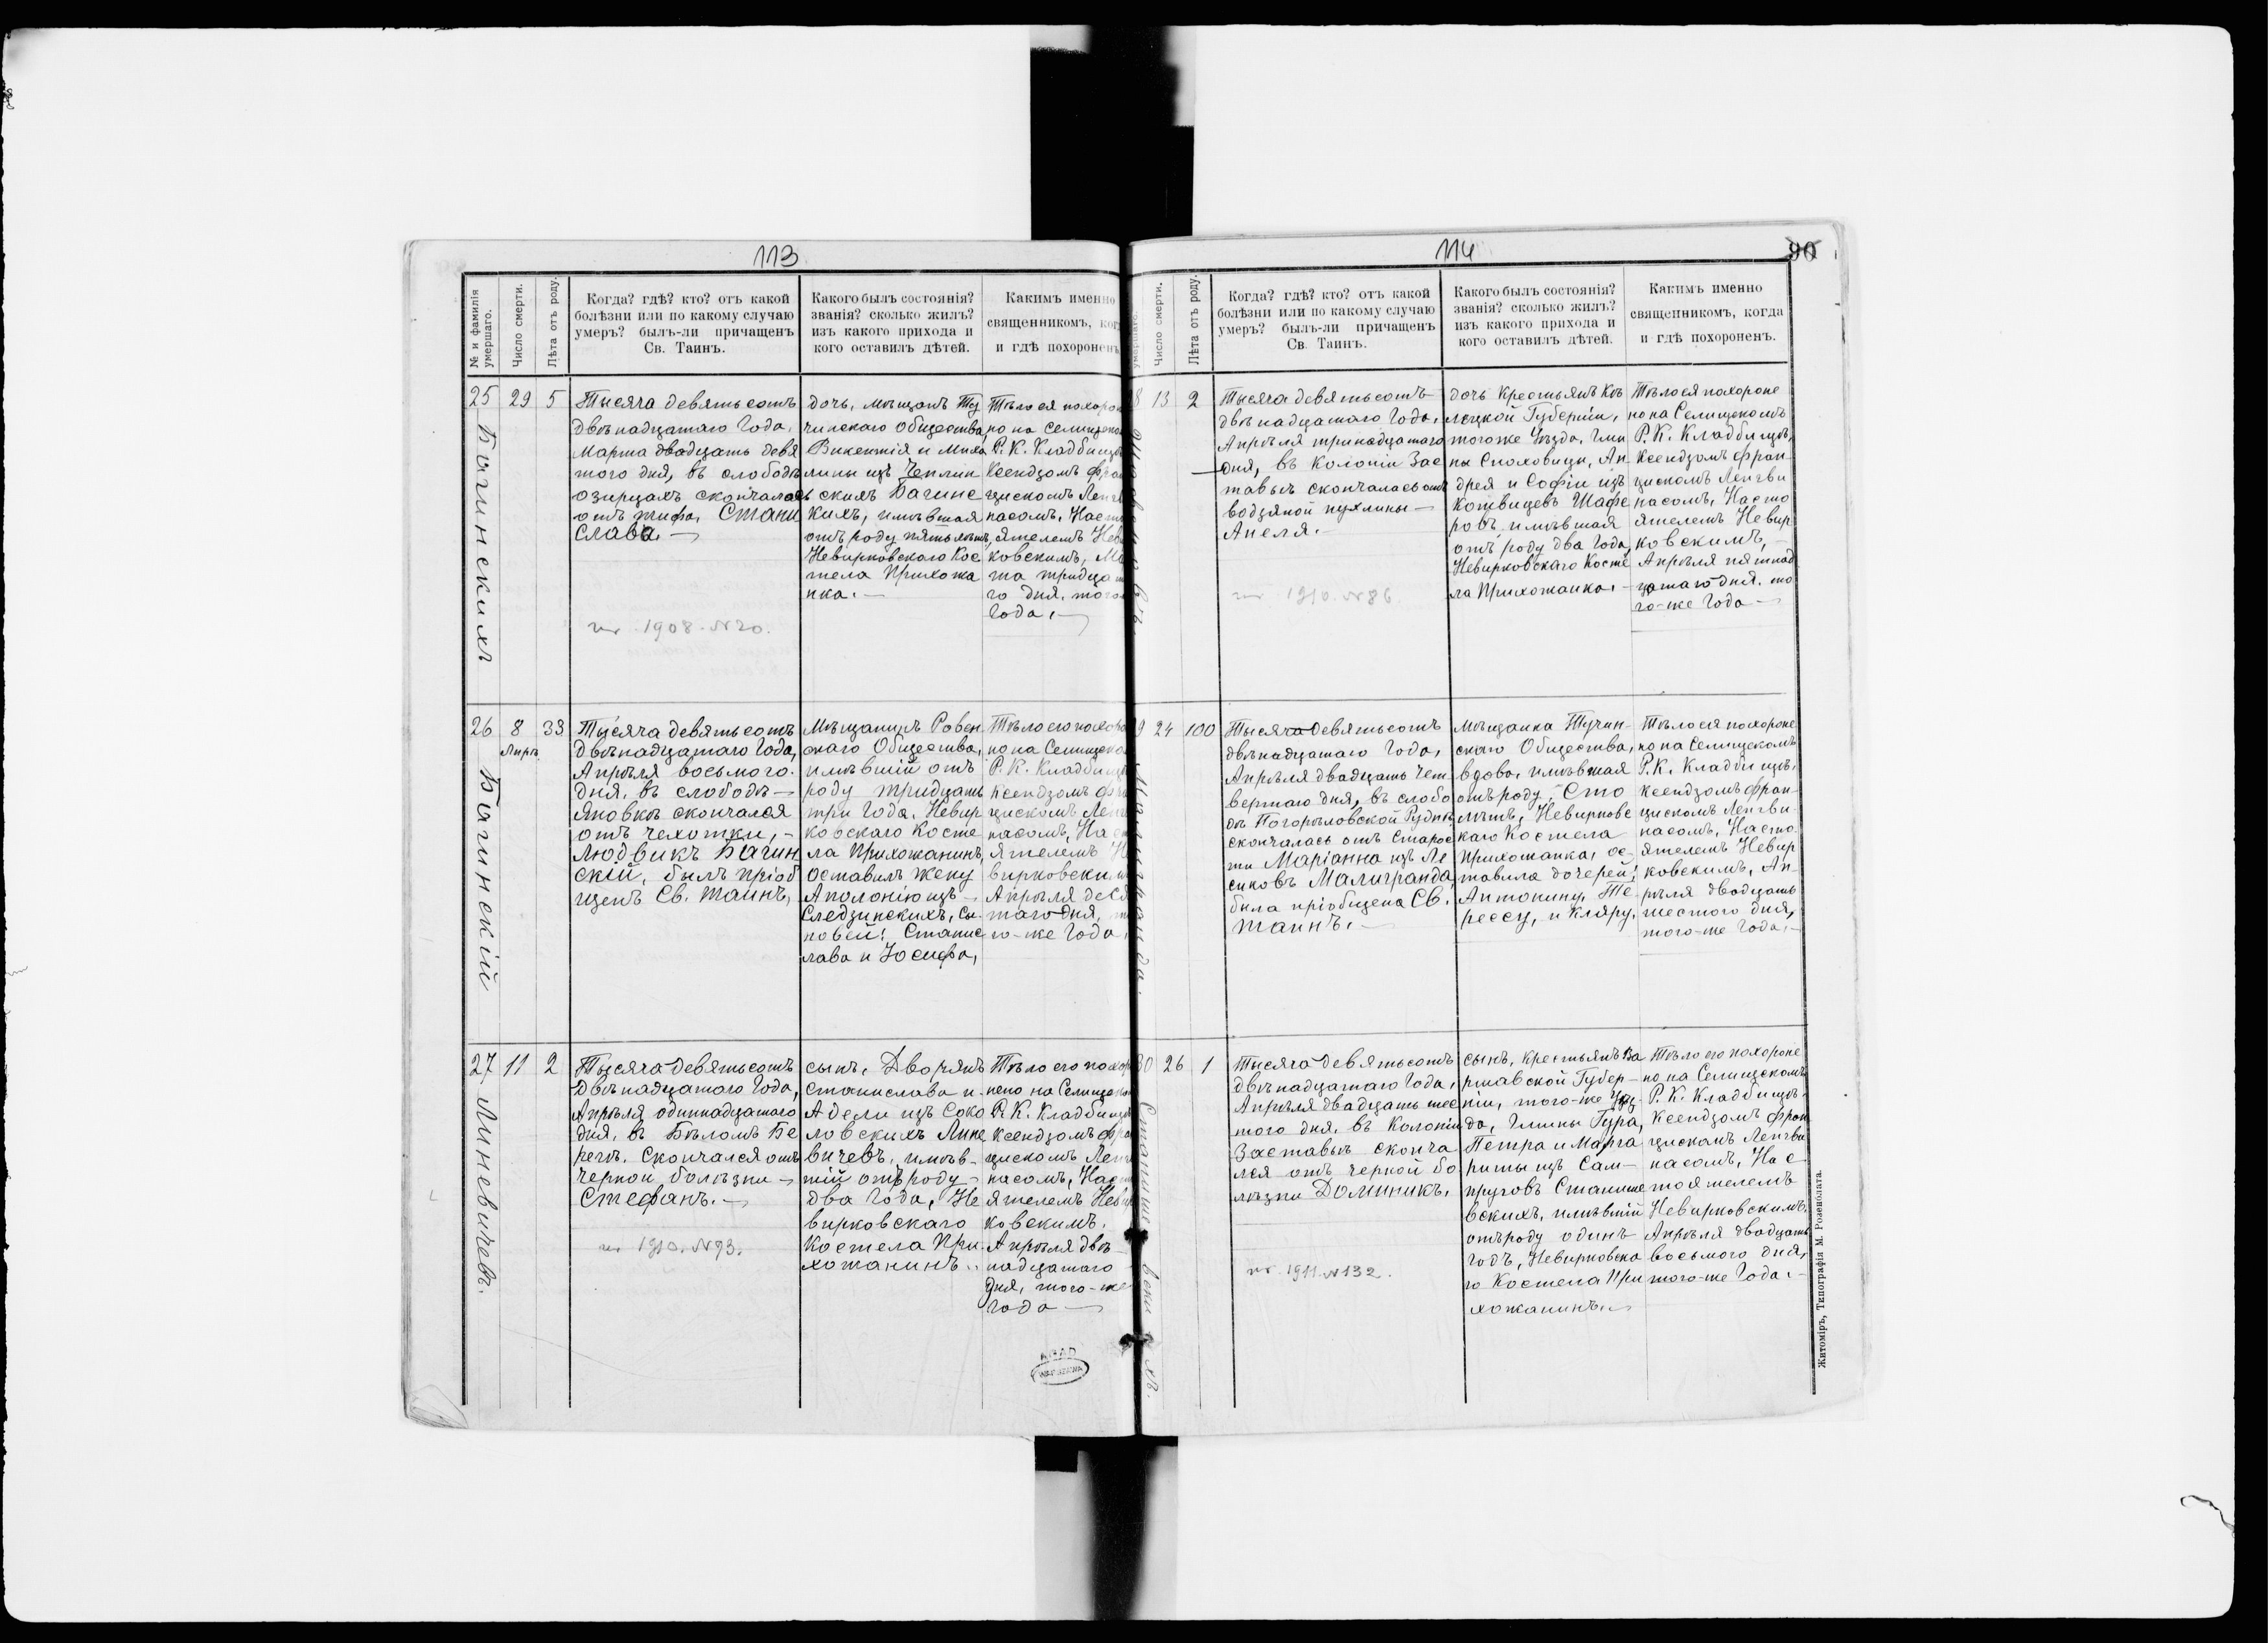 113
№ и фамилія умершаго.
Число смерти.
Лѣта отъ роду.
Когда? гдѣ? кто? отъ какой
болѣзни или по какому случаю
умеръ? былъ-ли причащенъ
Св. Таинъ.
Какого былъ состоянія?
званія? сколько жилъ?
изъ какого прихода и
кого оставилъ дѣтей.
Какимъ именно
священникомъ, ког
и гдѣ похороненъ
25
29
5
Багинскихъ
Тысяча девятьсотъ
двѣнадцатаго Года,
Марта двадцать девя
того дня, въ слободѣ
озирцахъ скончалась
отъ тифа, Стани
слава. —
ur 1908. N 20.
дочь, мѣщанъ Ту
чинскаго Общества,
Викентія и Миха
лины изъ Чеплин
скихъ Багинс
кихъ, имѣвшая
отъ роду пять лѣтъ,
Невирковскаго Кос
тела Прихожа
нка. —
Тѣло ея похоро
но на Селищско
Р. К. Кладбищѣ
Ксендзомъ Фран
цискомъ Ленгв
насомъ, Наст
ятелемъ Нев
ковскимъ, Ма
та тридцат
го дня, того
Года. —
26
8
Апрѣ.
33
Багинскій
Тысяча девятьсотъ
двѣнадцатаго Года,
Апрѣля восьмого
дня, въ слободѣ —
Яновкѣ скончался
отъ чехотки, -
Людвикъ Багин
скій, былъ пріоб
щенъ Св. Таинъ,
Мѣщанинъ Ровен
скаго Общества,
имѣвшій отъ
роду тридцать
три Года, Невир
ковскаго Косте
ла Прихожанинъ,
Оставилъ жену
Аполонію изъ
Следзинскихъ, Сы-
новей: Станис
лава и Іосифа,
Тѣло его похоро
но на Селищско
Р. К. Кладбищѣ
Ксендзомъ Фра
цискомъ Ленг
насомъ, Наст
ятелемъ Н
вирковским
Апрѣля деся
таго дня, т
го-же Года,
27
11
2
Линевичевъ.
Тысяча девятьсотъ
двѣнадцатаго Года,
Апрѣля одиннадцатаго
дня, въ Бѣломъ Бе
регѣ, Скончался отъ
черной болѣзни —
Стефанъ. —
ur 1910. N 93.
сынъ, Дворянъ
Станислава и
Адели изъ Соко
ловскихъ Лине
вичевъ, имѣв-
шій отъ роду -
два Года, Не
вирковскаго
Костела При
хожанинъ..
Тѣло его похор
нено на Селищско
Р. К. Кладбищѣ
Ксендзомъ Фра
цискомъ Ленг
насомъ, Наст
ятелемъ Невир
ковскимъ,
Апрѣля двѣ-
надцатаго
дня, того-же
Года —
AGAD
WARSZAWA
114
90
умершаго.
Число смерти.
Лѣта отъ роду.
Когда? гдѣ? кто? отъ какой
болѣзни или по какому случаю
умеръ? былъ-ли причащенъ
Св. Таинъ.
Какого былъ состоянія?
званія? сколько жилъ?
изъ какого прихода и
кого оставилъ дѣтей.
Какимъ именно
священникомъ, когда
и гдѣ похороненъ.
8
13
2
Тысяча девятьсотъ
двѣнадцатаго Года,
Апрѣля тринадцатаго
дня, въ Колоніи Зас
тавьѣ скончалась отъ
водзяной пухлины —
Анеля.
ur 1910. N 86
дочь Крестьянъ Кѣ
лецкой Губерніи,
тогоже Уѣзда, Гми
ны Сноховици, Ан
дрея и Софіи изъ
Котвицевъ Шафе
ровъ имѣвшая
отъ роду два Года,
Невирковскаго Косте
ла Прихожанка. -
Тѣло ея похороне
но на Селищскомъ
Р. К. Кладбищѣ,
Ксендзомъ Фран
цискомъ Ленгви
насомъ, Насто
ятелемъ Невир
ковскимъ, -
Апрѣля пятнад
цатаго дня, то
го-же Года —
9
24
100
Малигранда.
Тысяча девятьсотъ
двѣнадцатаго Года,
Апрѣля двадцать чет
вертаго дня, въ слобо
дѣ Погорѣловской Рудни
скончалась отъ старос
ти Маріанна изъ Ле
сиковъ Малигранда,
была пріобщена Св.
Таинъ. —
Мѣщанка Тучин-
скаго Общества,
вдова, имѣвшая
отъ роду Сто
лѣтъ, Невирковс
каго Костела
Прихожанка, ос-
тавила дочерей:
Антонину, Те
рессу, и Кляру,
Тѣло ея похороне
но на Селищскомъ
Р. К. Кладбищѣ,
Ксендзомъ Фран-
цискомъ Ленгви-
насомъ, Насто-
ятелемъ Невир
ковскимъ, Ап-
рѣля двадцать
шестого дня,
того-же Года. -
30
26
1
Тысяча девятьсотъ
двѣнадцатаго Года,
Апрѣля двадцать шес
того дня, въ Колоніи
Заставьѣ сконча
лся отъ черной бо
лѣзни Доминикъ.
ur 1911. N 132.
сынъ, крестьянъ Ва
ршавской Губер-
ніи, того-же Уѣз-
да, Гмины Гура,
Петра и Марга
риты изъ Сам-
пруговъ Станише
вскихъ, имѣвшій
отъ роду одинъ
Годъ, Невирковска
го Костела При
хожанинъ. —
Тѣло его похороне
но на Селищскомъ
Р. К. Кладбищѣ,
Ксендзомъ Фран
цискомъ Ленгви
насомъ, Нас-
тоятелемъ
Невирковскимъ,
Апрѣля двадцать
восьмого дня,
того-же Года. -
Житоміръ, Типографія М. Розенблата.